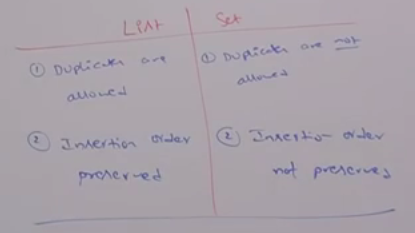 List Set
① Duplicates are
allowed
① Duplicates are not
allowed
② Insertion order
preserved
② Insertion order
not preserved